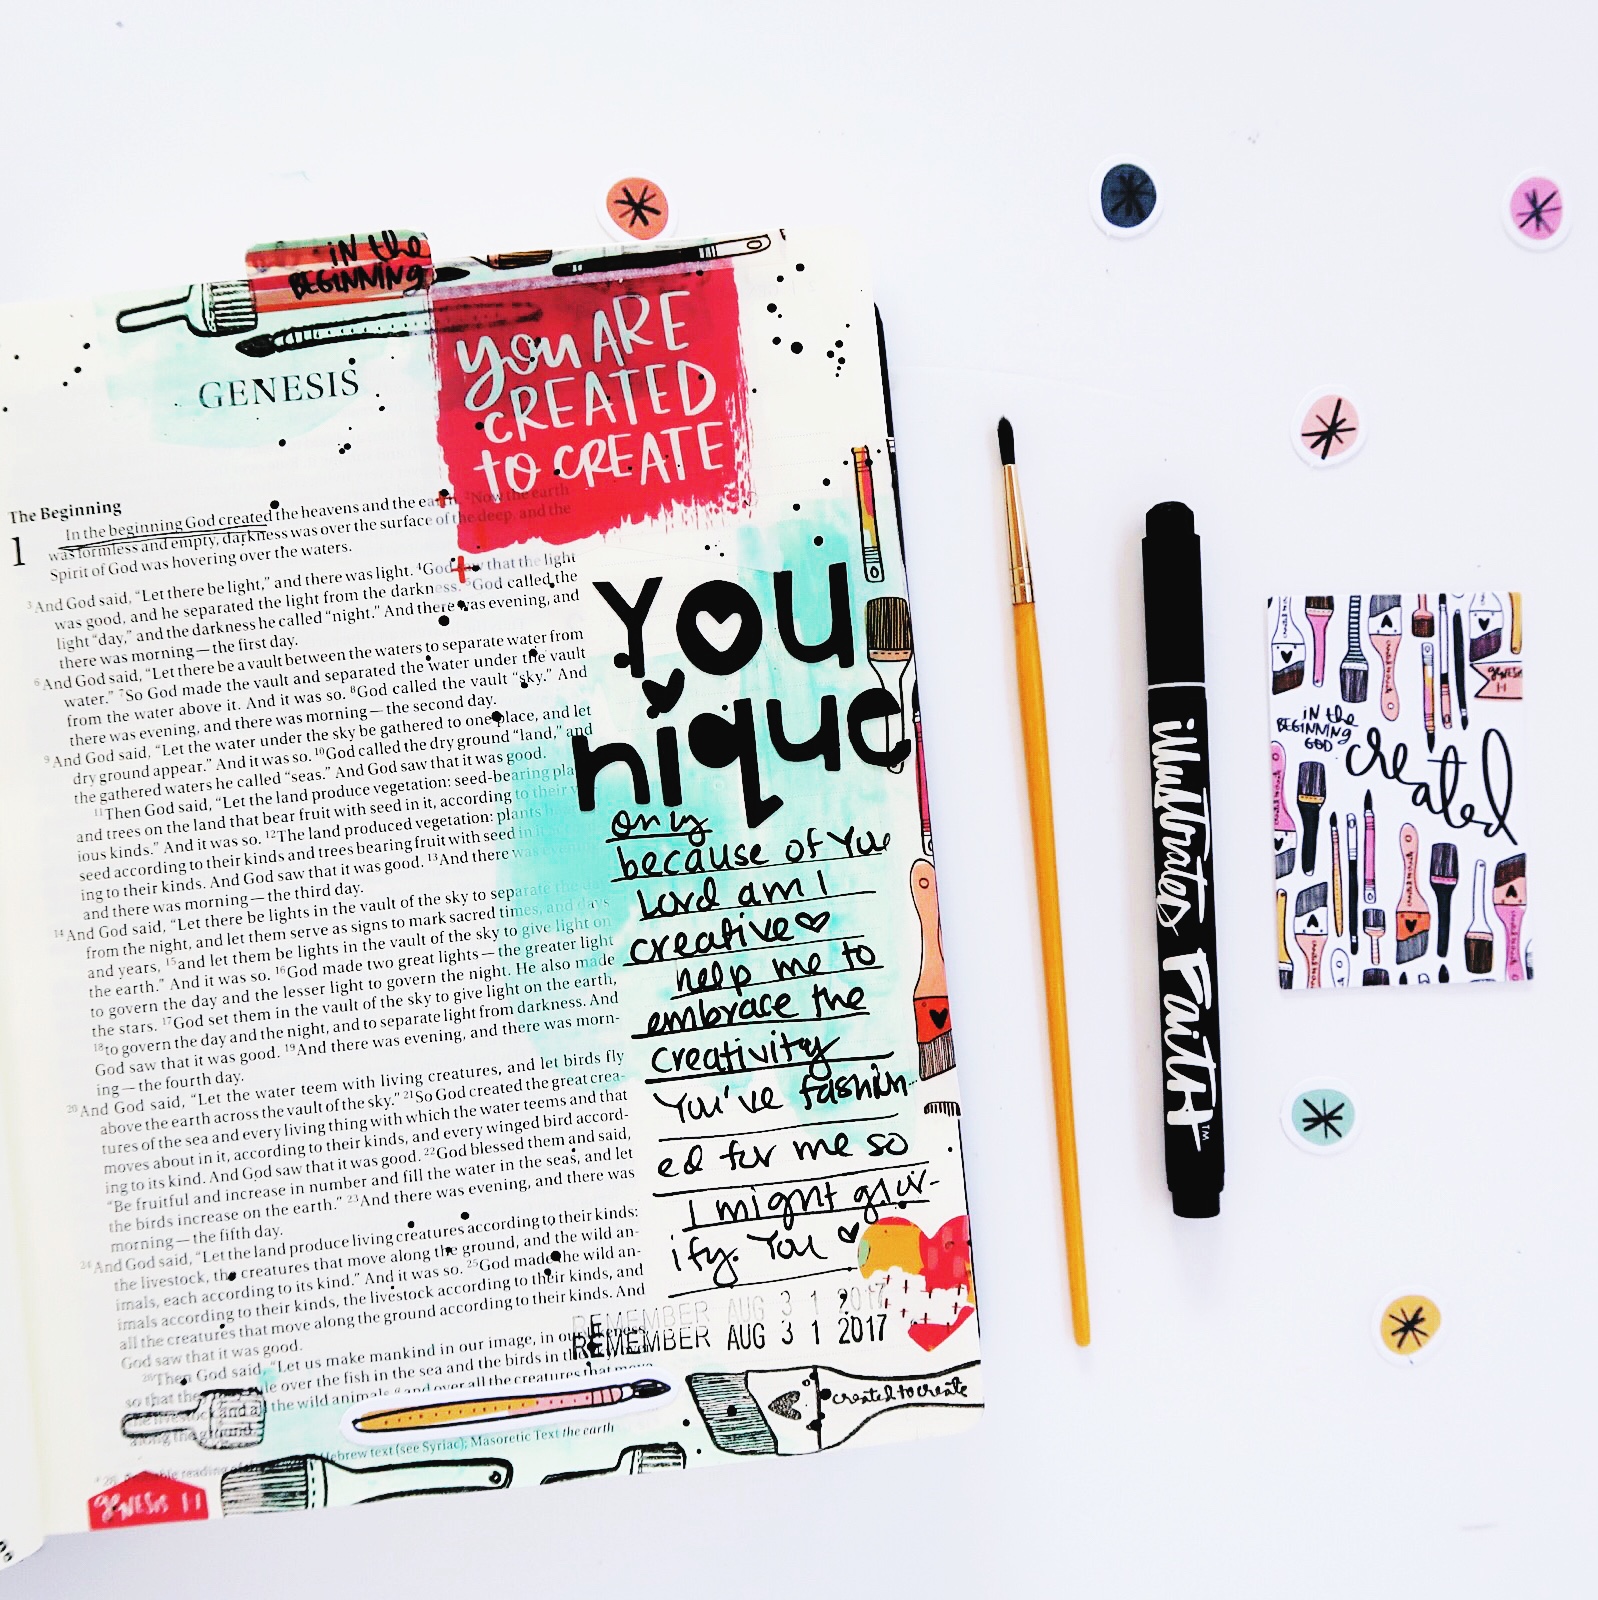 in the
BEGINNING
GENESIS
you ARE
CREATED
to CREATE
The Beginning
1 In the beginning God created the heavens and the earth. ²Now the earth
was formless and empty, darkness was over the surface of the deep, and the
Spirit of God was hovering over the waters.
³And God said, “Let there be light,” and there was light. ⁴God saw that the light
was good, and he separated the light from the darkness. ⁵God called the
light “day,” and the darkness he called “night.” And there was evening, and
there was morning—the first day.
⁶And God said, “Let there be a vault between the waters to separate water from
water.” ⁷So God made the vault and separated the water under the vault
from the water above it. And it was so. ⁸God called the vault “sky.” And
there was evening, and there was morning—the second day.
⁹And God said, “Let the water under the sky be gathered to one place, and let
dry ground appear.” And it was so. ¹⁰God called the dry ground “land,” and
the gathered waters he called “seas.” And God saw that it was good.
¹¹Then God said, “Let the land produce vegetation: seed-bearing
and trees on the land that bear fruit with seed in it, according to their
ious kinds.” And it was so. ¹²The land produced vegetation: plants
seed according to their kinds and trees bearing fruit with seed in it
ing to their kinds. And God saw that it was good. ¹³And there was
and there was morning—the third day.
¹⁴And God said, “Let there be lights in the vault of the sky to separate the day
from the night, and let them serve as signs to mark sacred times, and days
and years, ¹⁵and let them be lights in the vault of the sky to give light on
the earth.” And it was so. ¹⁶God made two great lights—the greater light
to govern the day and the lesser light to govern the night. He also made
the stars. ¹⁷God set them in the vault of the sky to give light on the earth,
¹⁸to govern the day and the night, and to separate light from darkness. And
God saw that it was good. ¹⁹And there was evening, and there was morn-
ing—the fourth day.
²⁰And God said, “Let the water teem with living creatures, and let birds fly
above the earth across the vault of the sky.” ²¹So God created the great crea-
tures of the sea and every living thing with which the water teems and that
moves about in it, according to their kinds, and every winged bird accord-
ing to its kind. And God saw that it was good. ²²God blessed them and said,
“Be fruitful and increase in number and fill the water in the seas, and let
the birds increase on the earth.” ²³And there was evening, and there was
morning—the fifth day.
²⁴And God said, “Let the land produce living creatures according to their kinds:
the livestock, the creatures that move along the ground, and the wild an-
imals, each according to its kind.” And it was so. ²⁵God made the wild an-
imals according to their kinds, the livestock according to their kinds, and
all the creatures that move along the ground according to their kinds. And
God saw that it was good.
²⁶Then God said, “Let us make mankind in our image, in our likeness,
so that they rule over the fish in the sea and the birds in the
the livestock and all the wild animals, ᵃ and over all the creatures that move
along the ground.”
reading of the Hebrew text (see Syriac); Masoretic Text the earth
genesis 1:1
You
nique
only
because of You
Lord am I
creative
help me to
embrace the
creativity
You've fashion-
ed for me so
I might glor-
ify. You
REMEMBER AUG 3 1 2017
REMEMBER AUG 3 1 2017
created to create
illustrated FAITH™
genesis
1:1
in the
BEGINNING
GOD
created